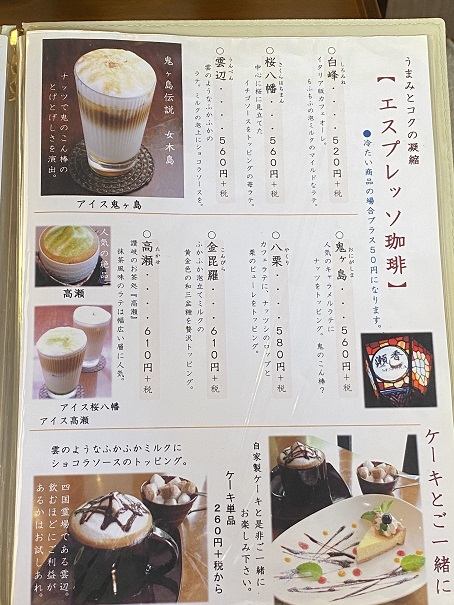 うまみとコクの凝縮
【エスプレッソ珈琲】
●冷たい商品の場合プラス50円になります。
○白峰・・・520円+税
しろみね
イタリア版カフェオーレ。
もふもふの泡ミルクのマイルドなラテ。
○桜八幡・・・560円+税
さくらはちまん
中心に桜に見立てた
イチゴソースをトッピングの苺ラテ。
○雲辺・・・560円+税
うんぺん
雲のようなふかふかの
ラテ。ミルクの泡上にショコラソースを。
鬼ヶ島伝説 女木島
ナッツで鬼のこん棒の
とげとげしさを演出。
アイス鬼ヶ島
○鬼ヶ島・・・560円+税
おにがしま
人気のキャラメルラテに
ナッツをトッピング。鬼のこん棒?
○八栗・・・580円+税
やくり
カフェラテに、ナッツシロップと
栗のピューレをトッピング。
○金毘羅・・・610円+税
こんぴら
ふかふか泡立てミルクの
黄金色の和三盆糖を贅沢トッピング。
○高瀬・・・610円+税
たかせ
讃岐のお茶処『高瀬』
抹茶風味のラテは幅広い層に人気。
人気の絶品!
高瀬
アイス桜八幡
アイス高瀬
瀬香
ケーキとご一緒に
自家製ケーキと是非ご一緒に
お楽しみ下さい。
ケーキ単品
260円+税から
雲のようなふかふかミルクに
ショコラソースのトッピング。
四国霊場である雲辺。
飲むほどにご利益が
あるかはお試しあれ。